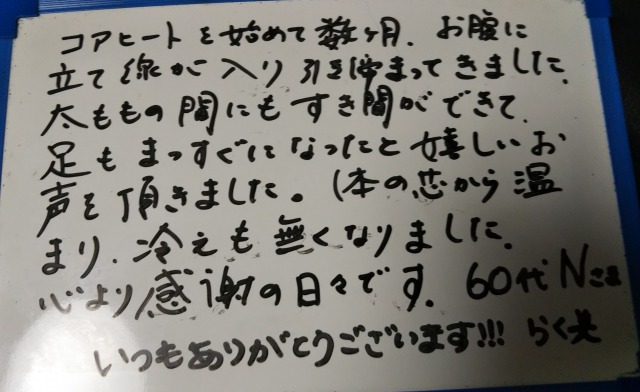 コアヒートを始めて数ヶ月、お腹に
立て線が入り引き締まってきました。
太ももの間にもすき間ができて、
足もまっすぐになったと嬉しいお
声を頂きました。(本の芯から温
まり、冷えも無くなりました。
心より感謝の日々です。60代Nさま
いつもありがとうございます!!! らく